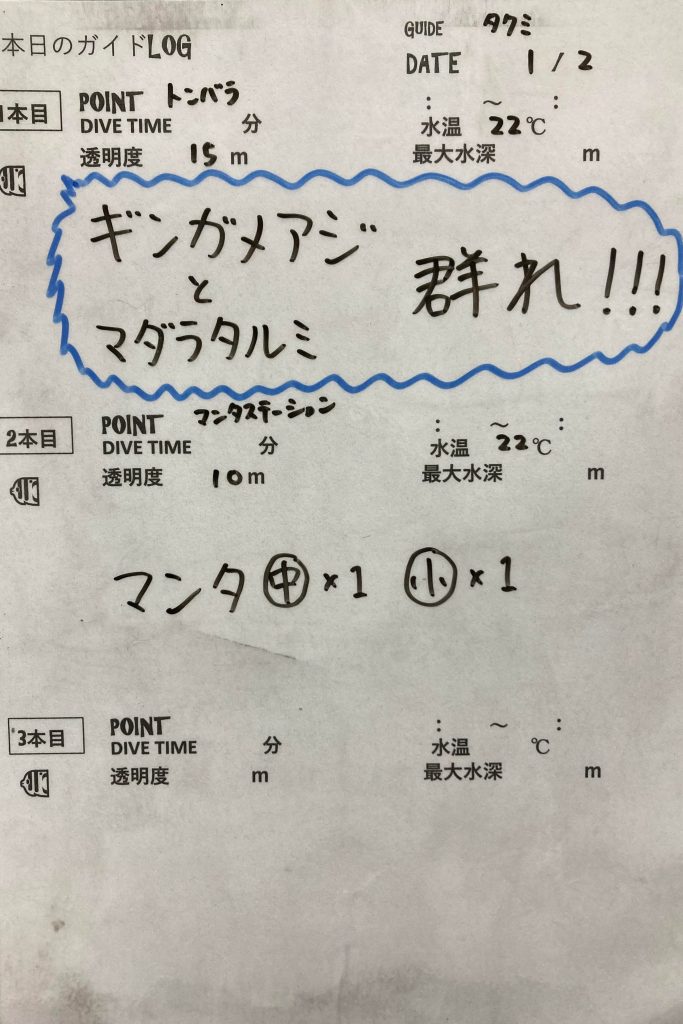 本日のガイドLOG
GUIDE タクミ
DATE 1 / 2
1本目
POINT トンバラ
: ～ :
DIVE TIME 分
水温 22℃
透明度 15 m
最大水深 m
ギンガメアジ
と
マダラタルミ
群れ!!!
2本目
POINT マンタステーション
: ～ :
DIVE TIME 分
水温 22℃
透明度 10 m
最大水深 m
マンタ ㊥ ×1 ㊙小 ×1
3本目
POINT
: ～ :
DIVE TIME 分
水温 ℃
透明度 m
最大水深 m